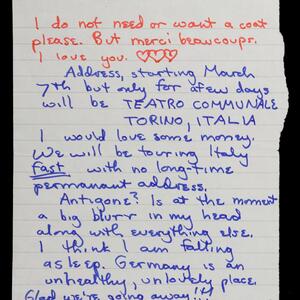 I do not need or want a coat
please. But merci beaucoups.
I love you. ♡♡♡♡
Address, starting March
7th but only for a few days
will be TEATRO COMMUNALE
TORINO, ITALIA
I would love some money.
We will be touring Italy
fast with no long-time
permanant address.
Antigone? Is at the moment
a big blurr in my head
along with everything else.
I think I am falling
asleep. Germany is an
unhealthy, unlovely place.
Glad we're going away!!!